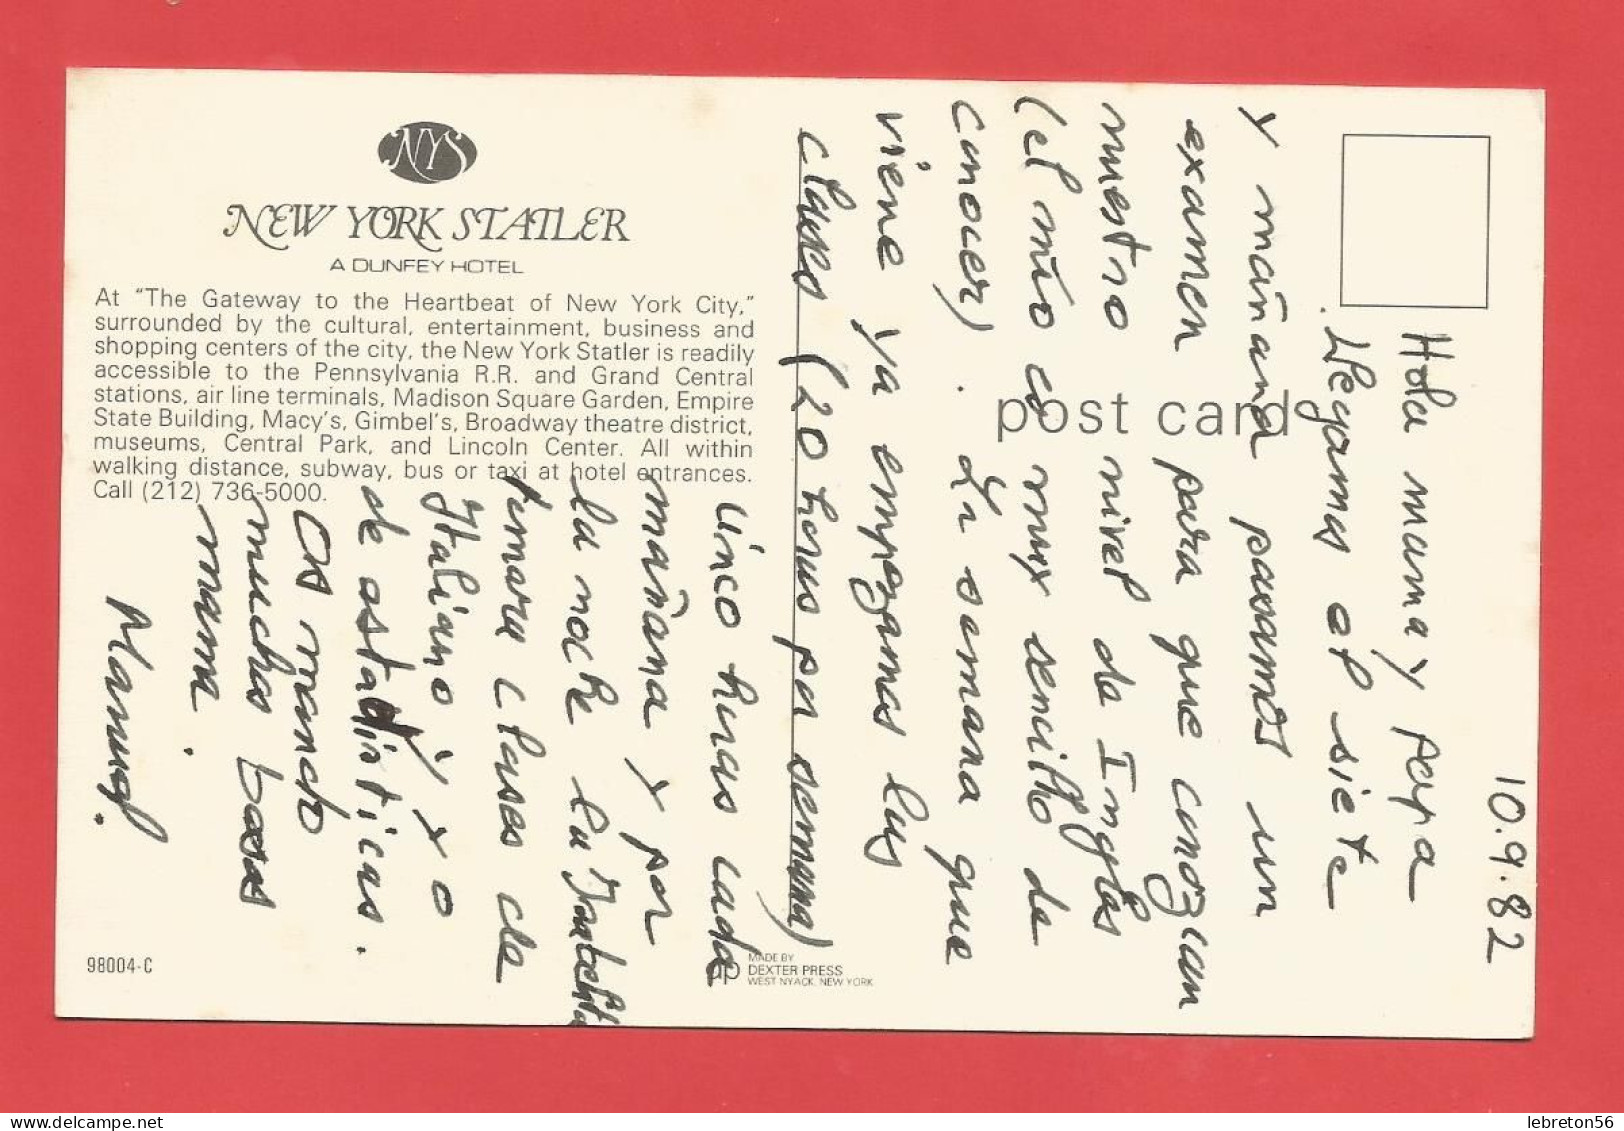 NYS
NEW YORK STATLER
A DUNFEY HOTEL
At "The Gateway to the Heartbeat of New York City,"
surrounded by the cultural, entertainment, business and
shopping centers of the city, the New York Statler is readily
accessible to the Pennsylvania R.R. and Grand Central
stations, air line terminals, Madison Square Garden, Empire
State Building, Macy's, Gimbel's, Broadway theatre district,
museums, Central Park, and Lincoln Center. All within
walking distance, subway, bus or taxi at hotel entrances.
Call (212) 736-5000.
98004-C
post card
MADE BY
DEXTER PRESS
WEST NYACK, NEW YORK
10.9.82
Hola mama y papa
Llegamos el siete
y mañana pasamos un
examen para que conozcan
nuestro nivel de Ingles
(el mio es muy sencillo de
conocer). La semana que
viene ya empezamos las
clases (20 horas por semana)
cinco horas cada
mañana y por
la noche la
tomara clases de
Italiano y yo
de estadisticas.
Os mando
muchos besos
mama.
Manuel.
lebreton56